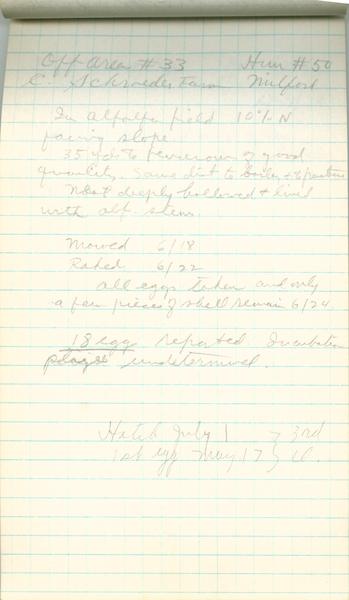 Off Area #33 Hen #50
C. Schroeder Farm Milford
In alfalfa field 10% N
facing slope
35 yds to fencerow of good
quantity. Same dist to + to pasture
Nest deeply hollowed + lined
with alf. stems.
Mowed 6/18
Raked 6/22
all eggs taken and only
a few pieces of shell remain 6/24
18 egg reported Incubation
undetermined.
Hatch July 1 } 3rd
1st egg May 17 } cl.